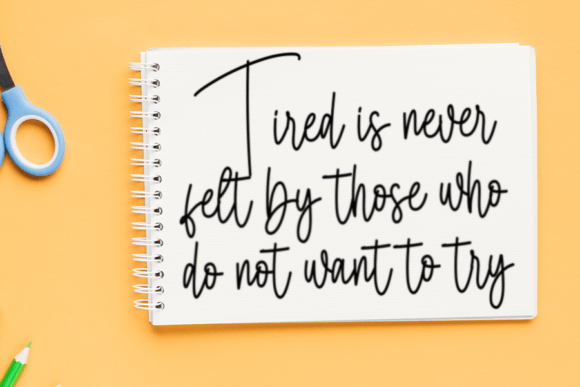 Tired is never
felt by those who
do not want to try